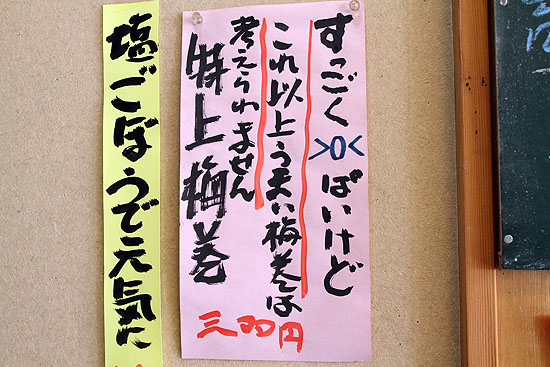 すっごく>0<ぱいけど
これ以上うまい梅巻は
考えられません
特上梅巻
三百円
塩ごぼうで元気に